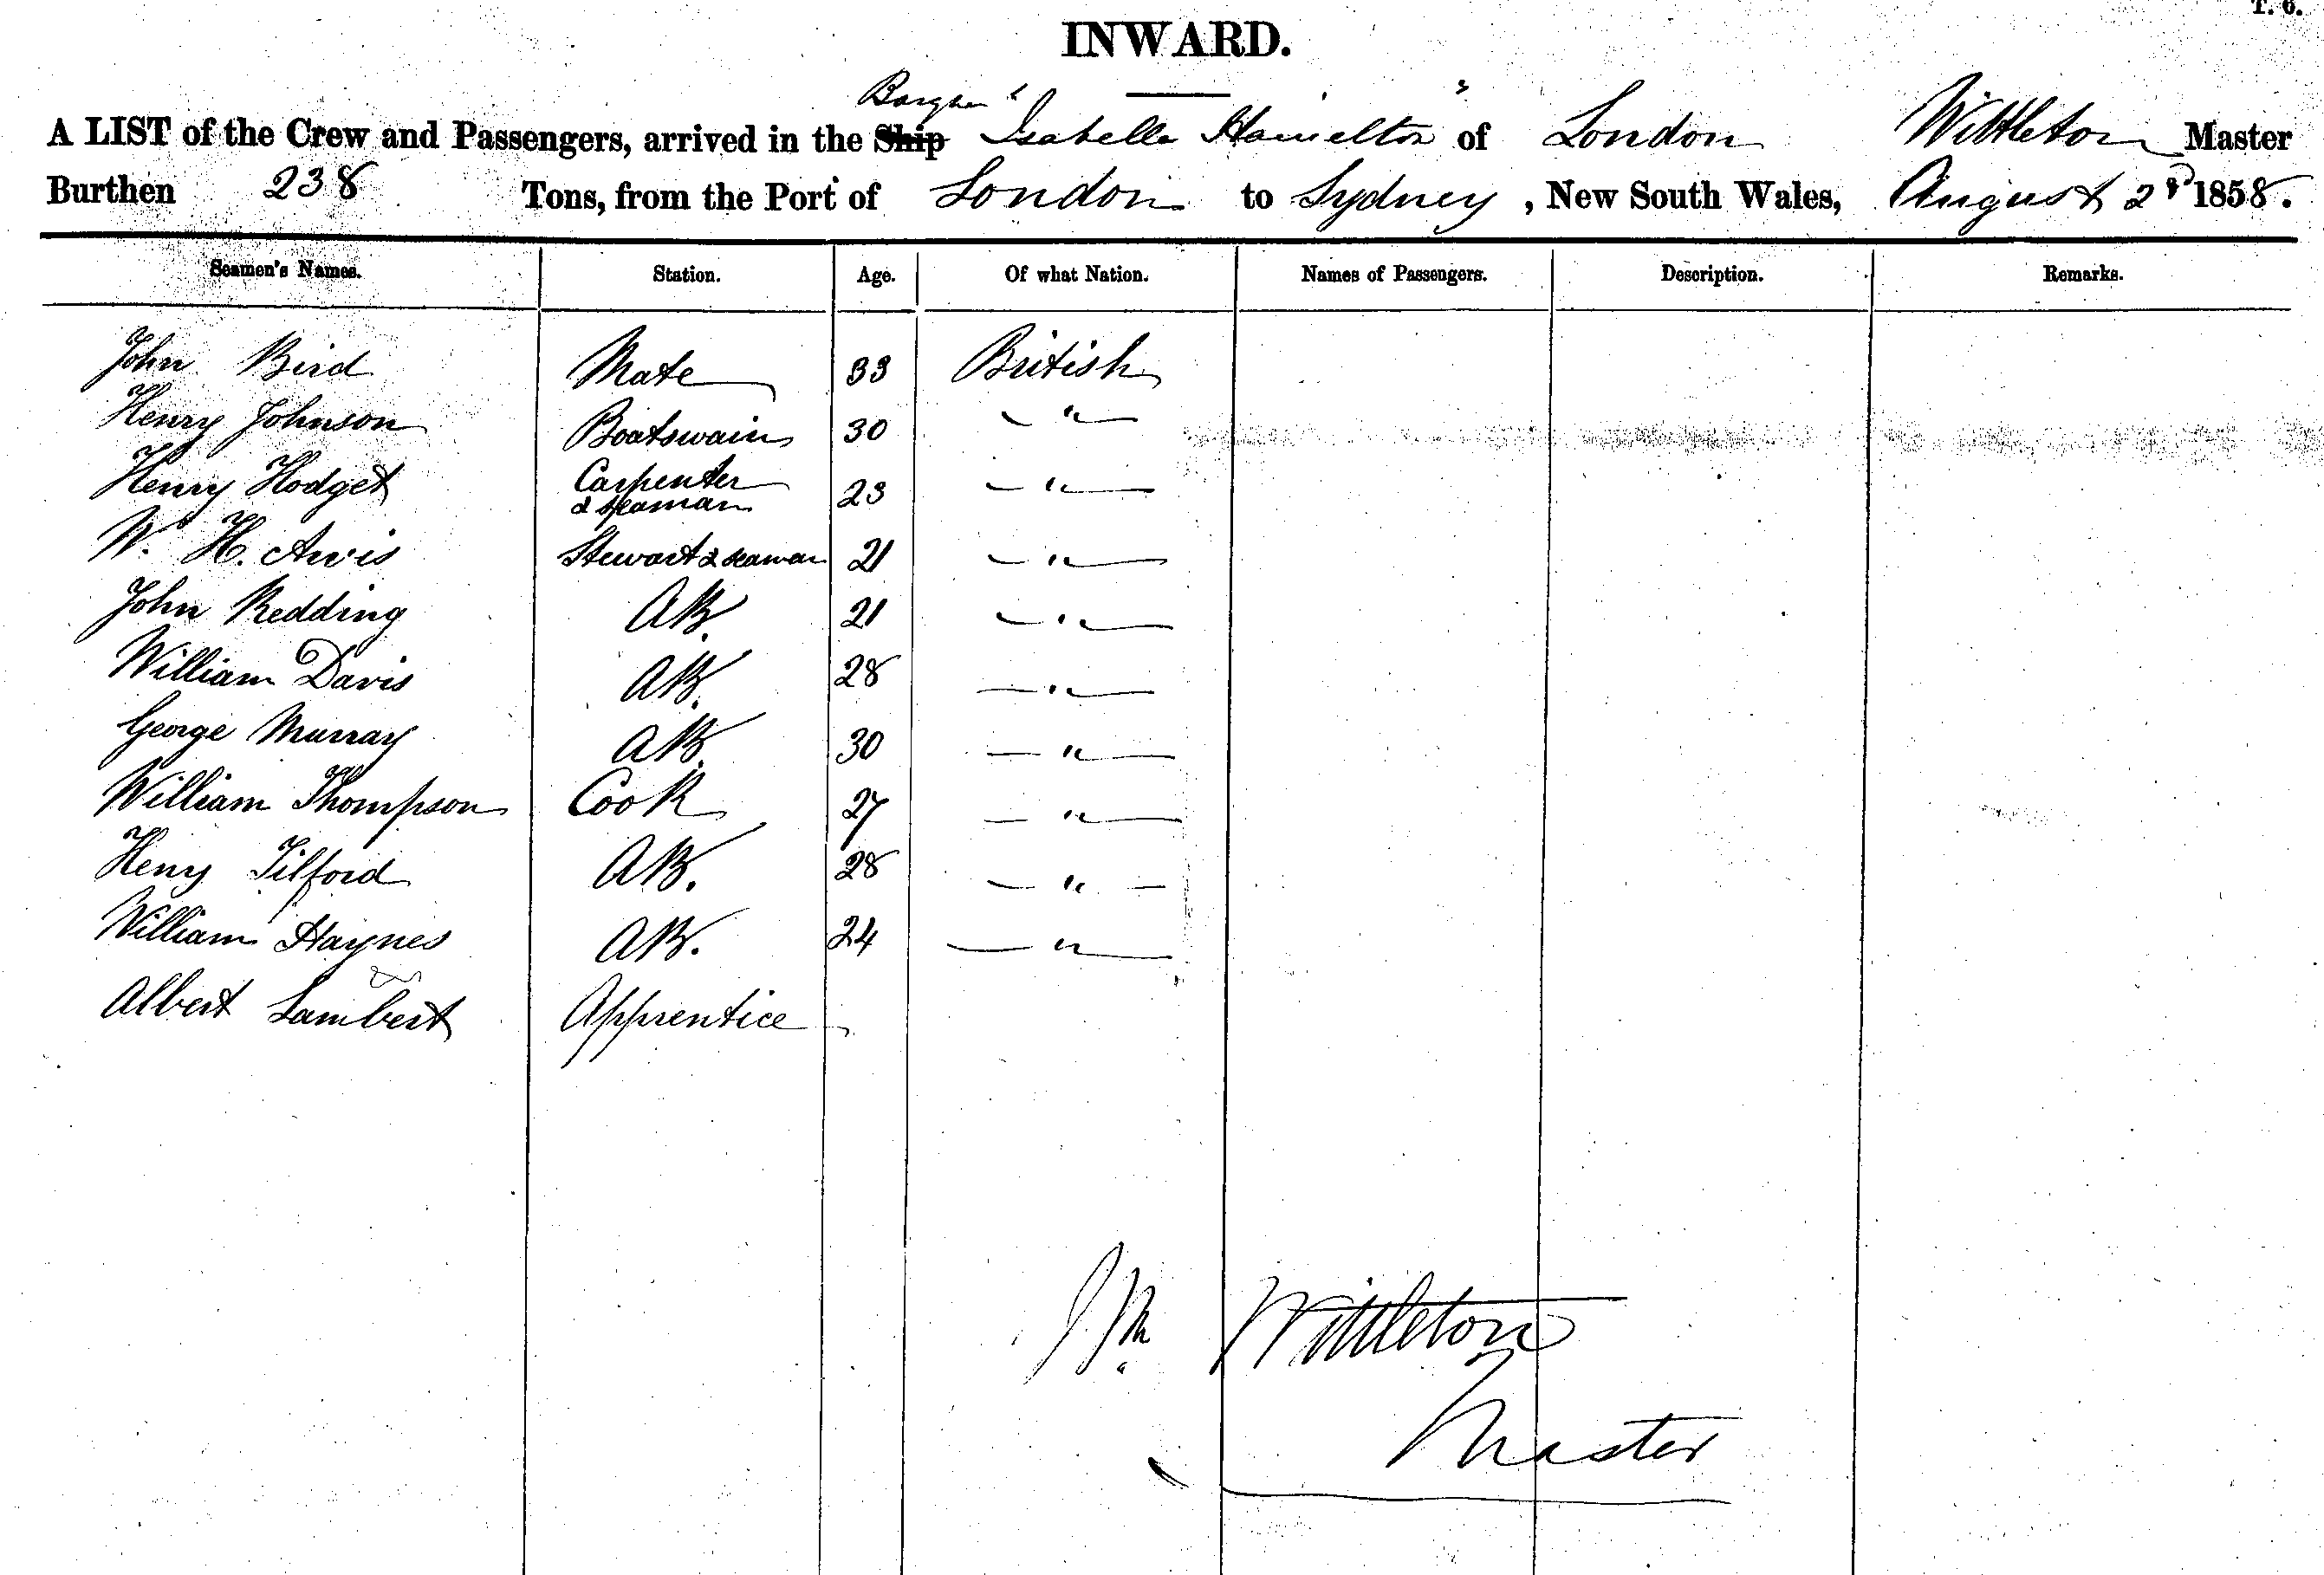 T. 6.
INWARD.
Barque "
A LIST of the Crew and Passengers, arrived in the Ship Isabella Hamelton " of London Wittleton Master
Burthen 238 Tons, from the Port of London to Sydney, New South Wales, August 2d 1858.
Seamen's Names. Station. Age. Of what Nation. Names of Passengers. Description. Remarks.
John Bird Mate 33 British
Henry Johnson Boatswain 30 — " —
Henry Hodget Carpenter & seaman 23 — " —
W. H. Avis Stewart & seaman 21 — " —
John Redding AB. 21 — " —
William Davis AB. 28 — " —
George Murray AB. 30 — " —
William Thompson Cook 27 — " —
Heny Tilford AB. 28 — " —
William Haynes AB. 24 — " —
Albert Lambert Apprentice
J M Wittleton
Master